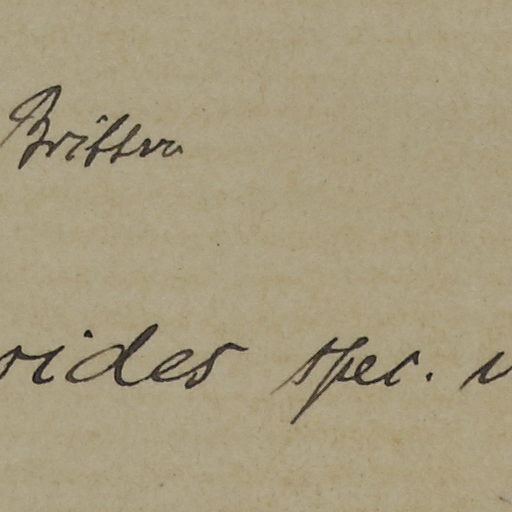 Britton
oides spec.